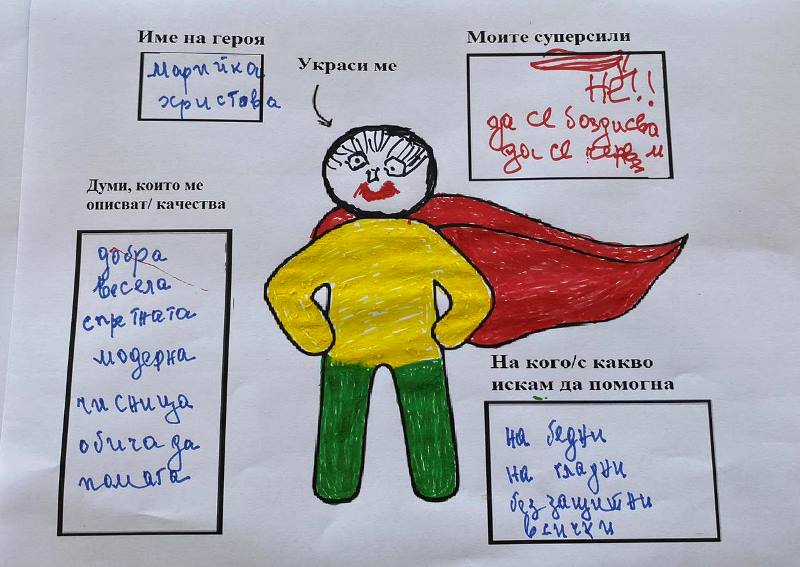 Име на героя
марийка
христова
Украси ме
Моите суперсили
НЕ!!
да се воздисва
да се
Думи, които ме
описват/ качества
добра
весела
спретната
модерна
чисница
обича да
помага
На кого/с какво
искам да помогна
на бедни
на гладни
беззащитни
всички